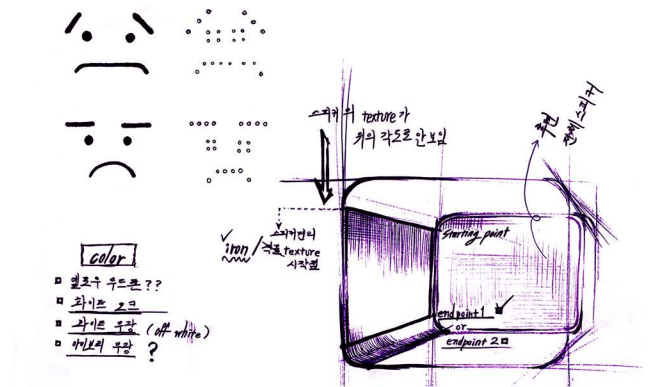 스피커의 texture가
위의 각도로 안보임
후면
전체 스피커
스피커면의
iron / texture
시작점
Starting point
endpoint 1
or
endpoint 2
color
옐로우 우드톤??
화이트 오크
화이트 우장 (off white)
아이보리 우장 ?